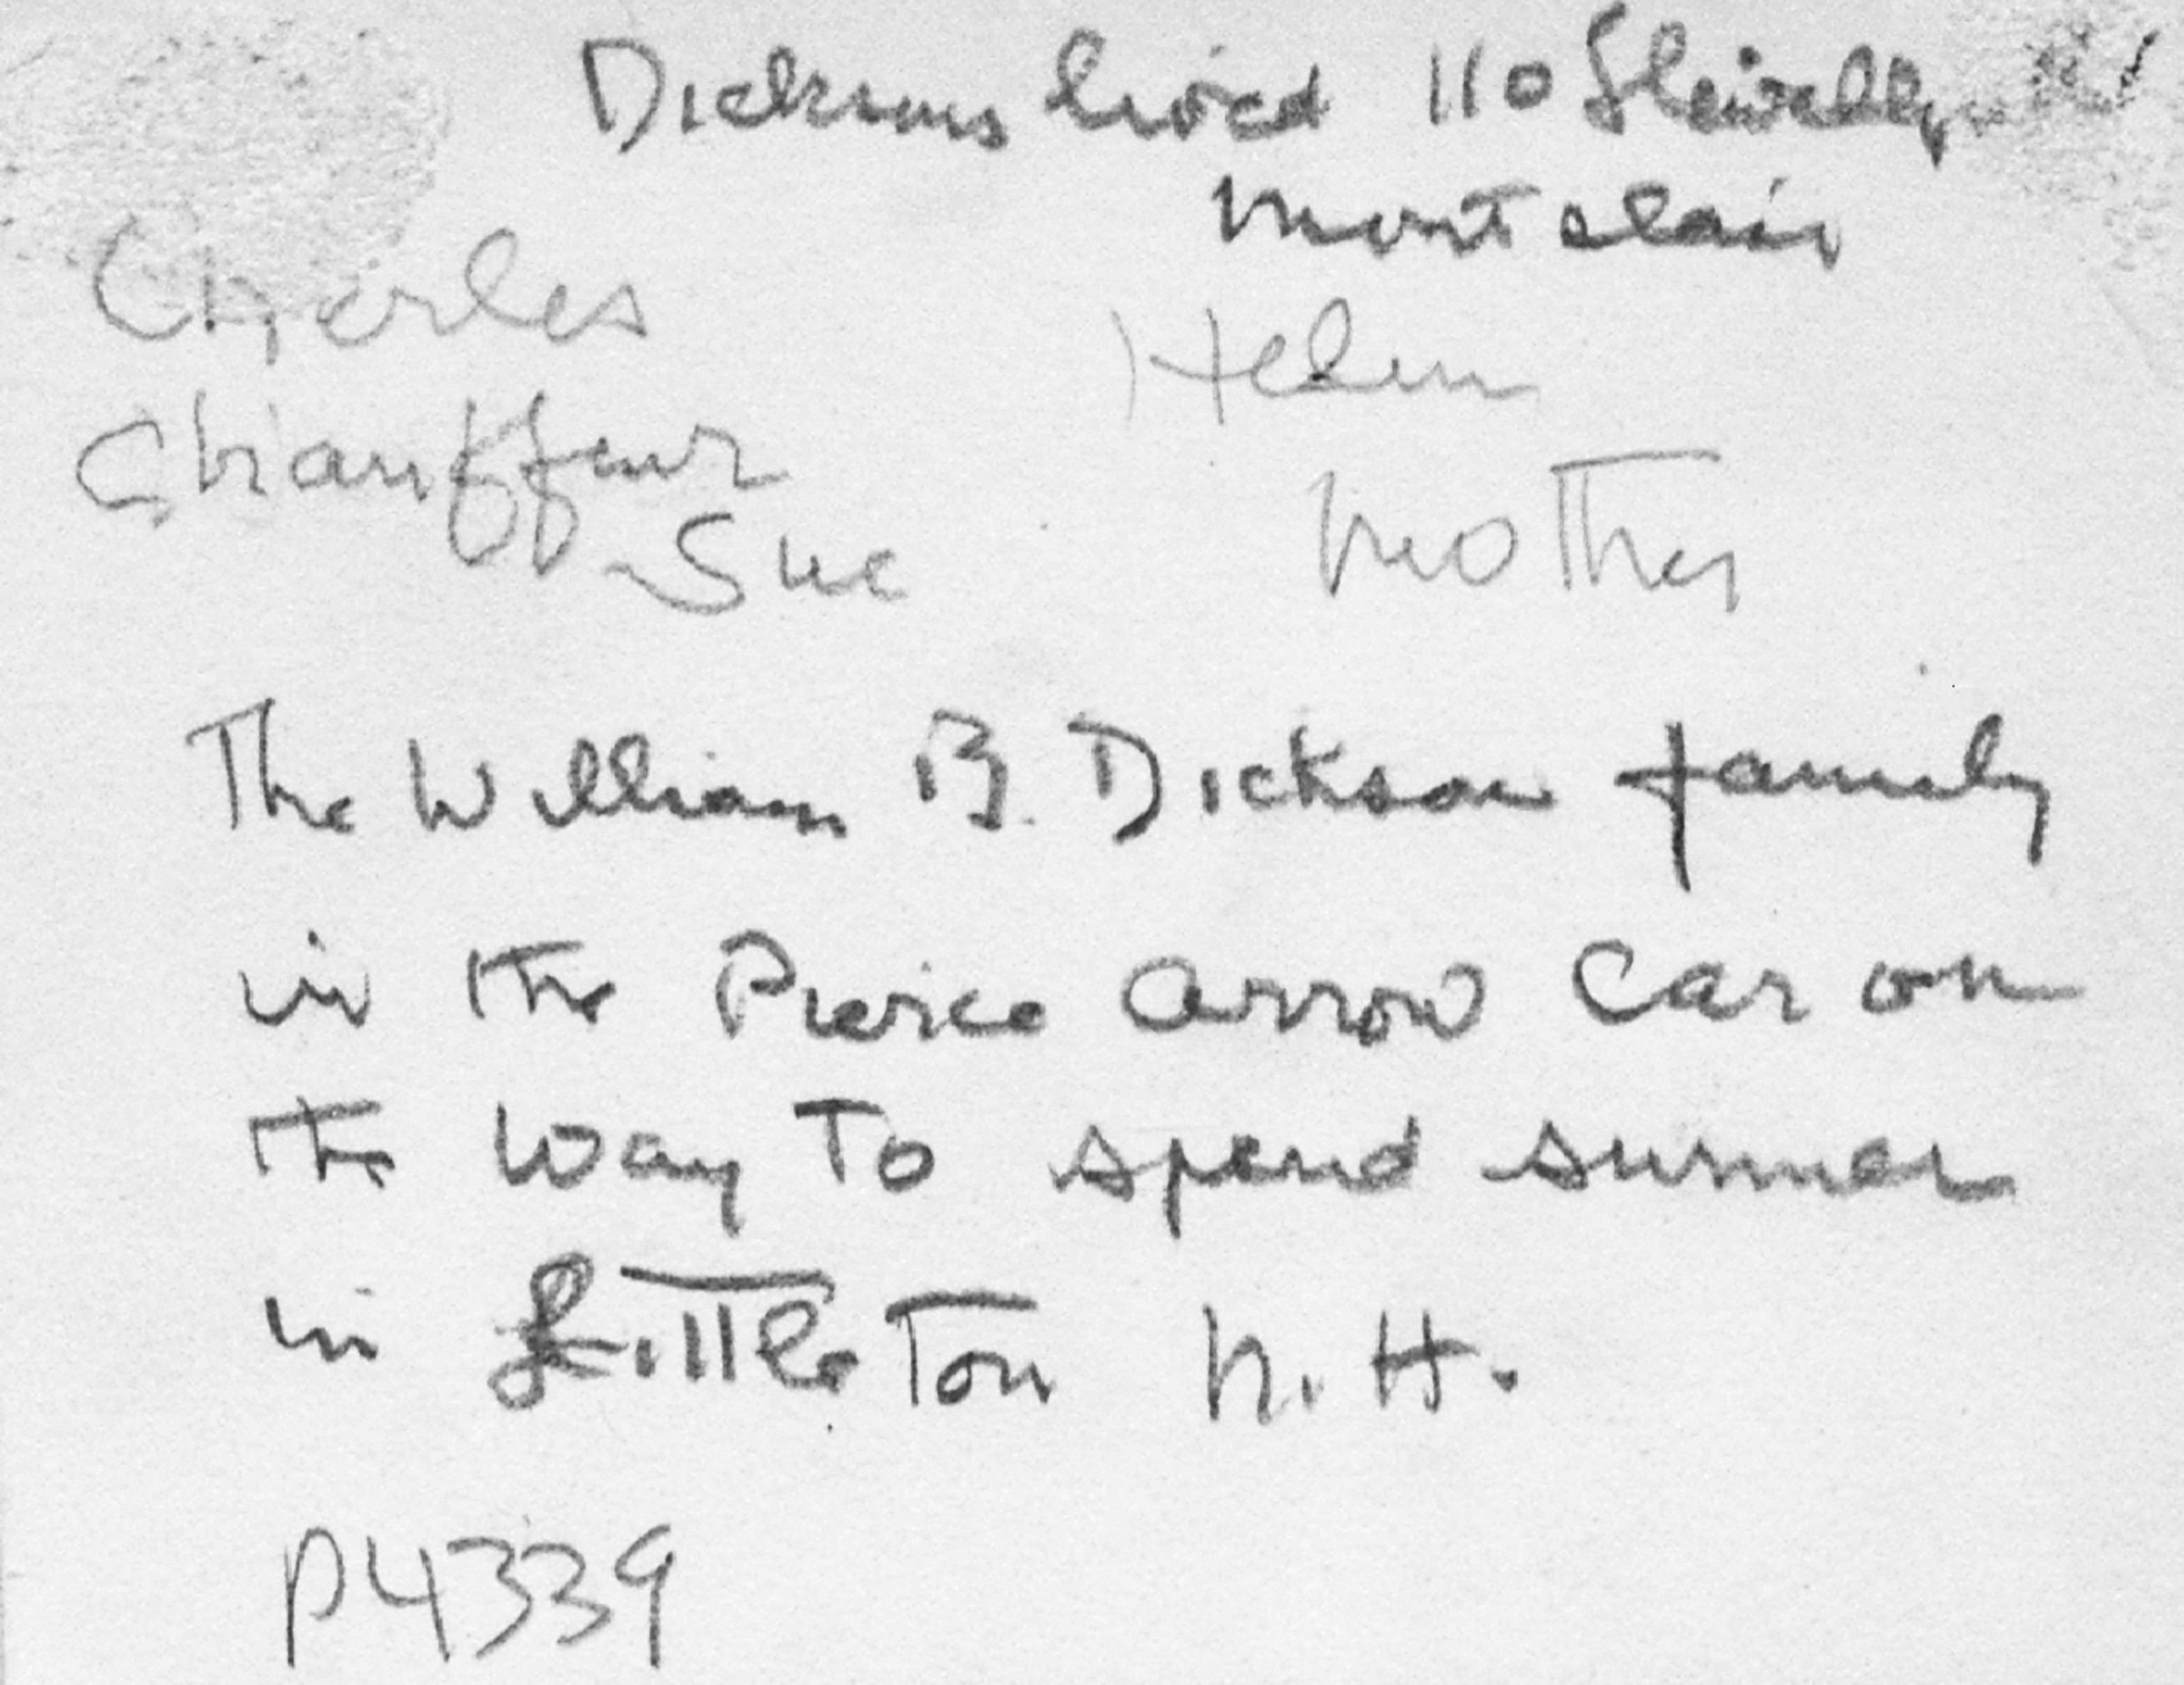 Dicksons lived 110 Llewellyn Rd
Montclair
Charles
Helen
Chauffeur
Mother
Sue
The William B. Dickson family
in the Pierce Arrow car on
the way to spend summer
in Littleton N.H.
P4339